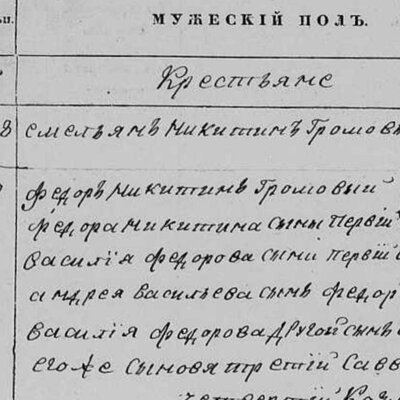 МУЖЕСКІЙ ПОЛЪ.
Крестьяне
8 емельянъ Никитинъ Громовы
Федоръ Никитинъ Громовый
Федора Никитина сыны первый
Василія Федорова сыны первый
андрея Васильева сынъ Федор
Василія Федорова другой сынъ
его же сыновя третій Савв
четвертій